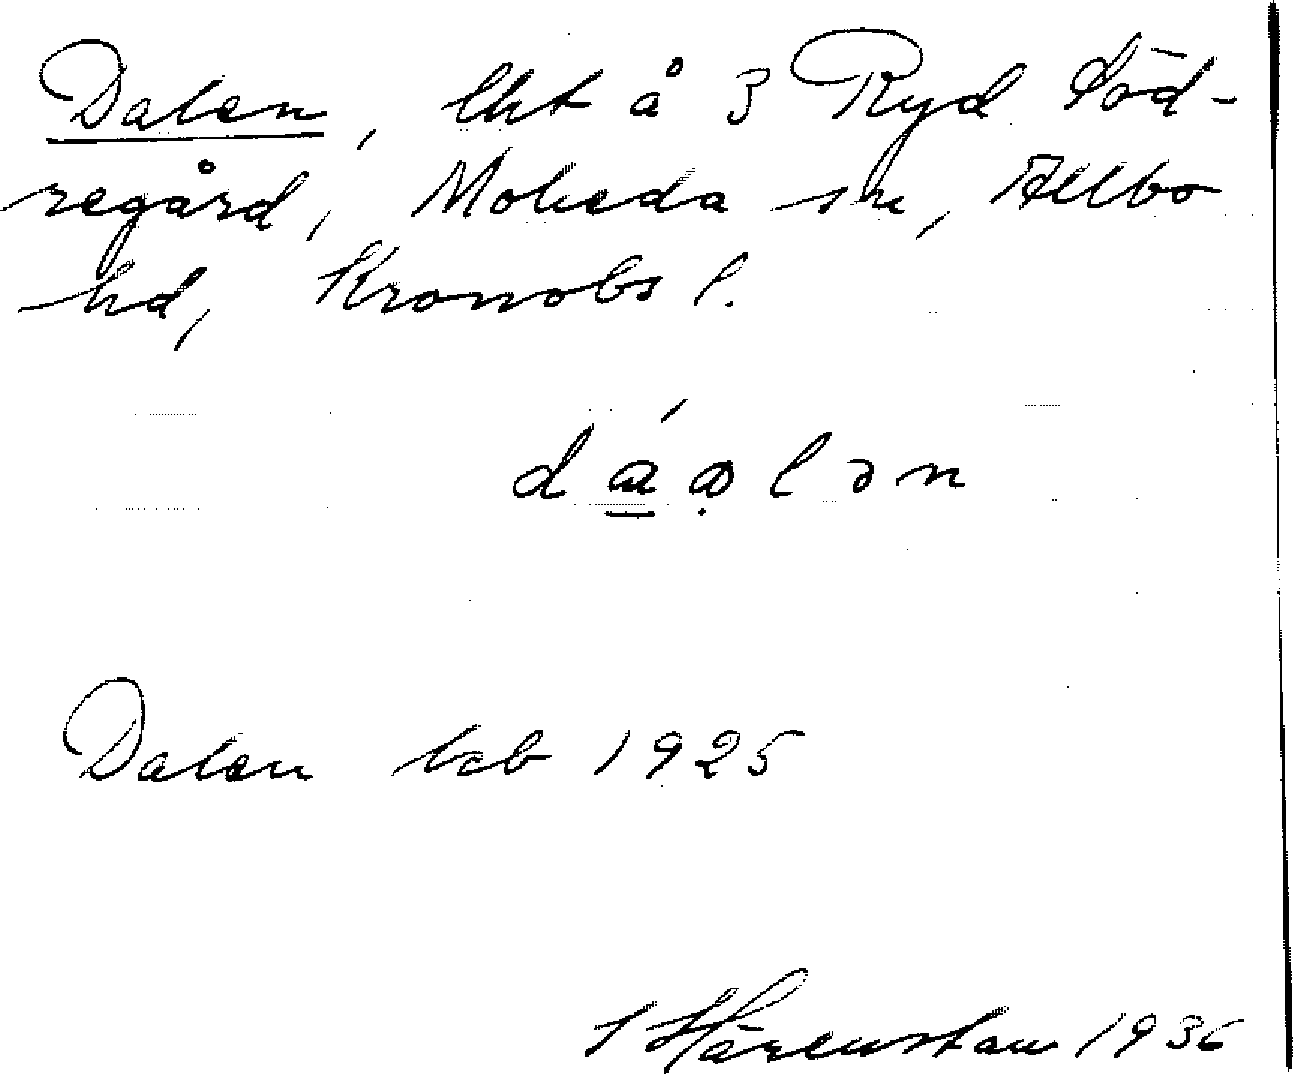 Dalen, lht å 3 Ryd Söd-
regård, Moheda sn, Allbo
hd, Kronobs l.
Dalen 1925
S Härenstam 1936